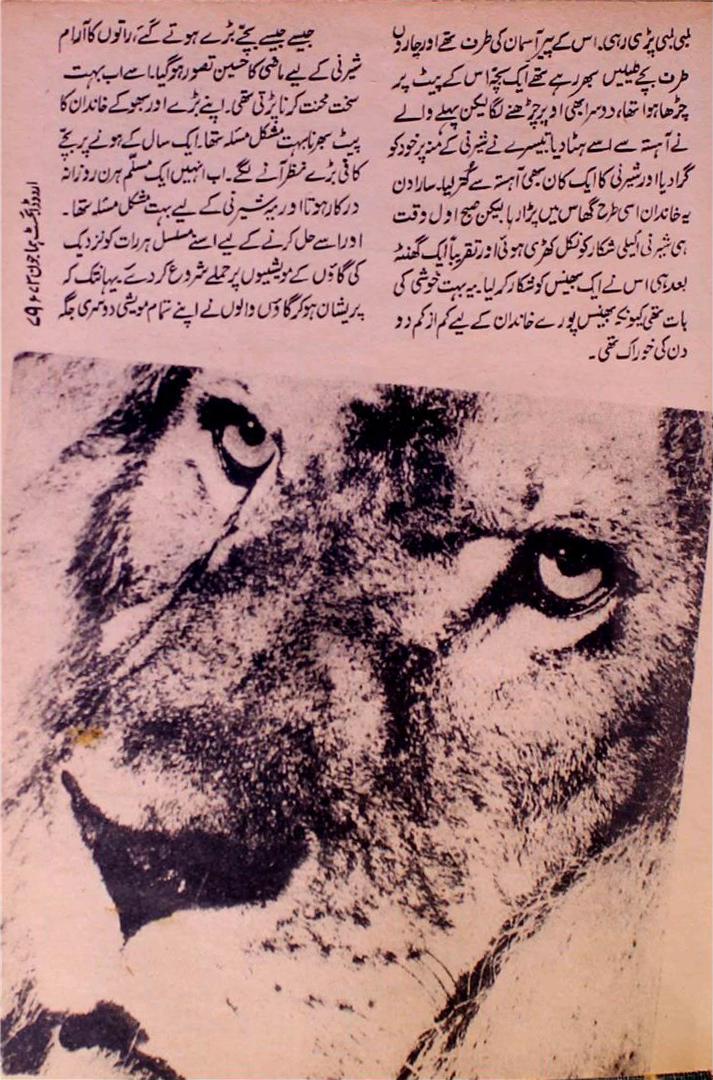 لمبی لمبی پڑی رہی۔ اس کے پیر آسمان کی طرف تھے اور چاروں
طرف بچے کلیلیں بھر رہے تھے ایک بچہ اس کے پیٹ پر
چڑھا ہوا تھا، دوسرا بھی اوپر چڑھنے لگا لیکن پہلے والے
نے آہستہ سے اسے ہٹا دیا تیسرے نے شیرنی کے منہ پر خود کو
گرا دیا اور شیرنی کا ایک کان بھی آہستہ سے کتر لیا۔ سارا دن
یہ خاندان اسی طرح گھاس میں پڑا رہا لیکن صبح اول وقت
ہی شیرنی اکیلی شکار کو نکل کھڑی ہوئی اور تقریباً ایک گھنٹہ
بعد ہی اس نے ایک بھینس کو شکار کر لیا۔ یہ بہت خوشی کی
بات تھی کیونکہ بھینس پورے خاندان کے لیے کم از کم دو
دن کی خوراک تھی۔
جیسے جیسے بچے بڑے ہوتے گئے، راتوں کا آرام
شیرنی کے لیے ماضی کا حسین تصور ہو گیا۔ اسے اب بہت
سخت محنت کرنا پڑتی تھی۔ اپنے بڑے اور بھوکے خاندان کا
پیٹ بھرنا بہت مشکل مسئلہ تھا۔ ایک سال کے ہونے پر بچے
کافی بڑے نظر آنے لگے۔ اب انہیں ایک مسلّم ہرن روزانہ
درکار ہوتا اور یہ شیرنی کے لیے بہت مشکل مسئلہ تھا۔
اور اسے حل کرنے کے لیے اسنے مسلسل ہر رات کو نزدیک
کی گاؤں کے مویشیوں پر حملے شروع کر دئے یہانتک کہ
پریشان ہو کر گاؤں والوں نے اپنے تمام مویشی دوسری جگہ
اردو ڈائجسٹ ہما جون ۷۳ء ۷۹